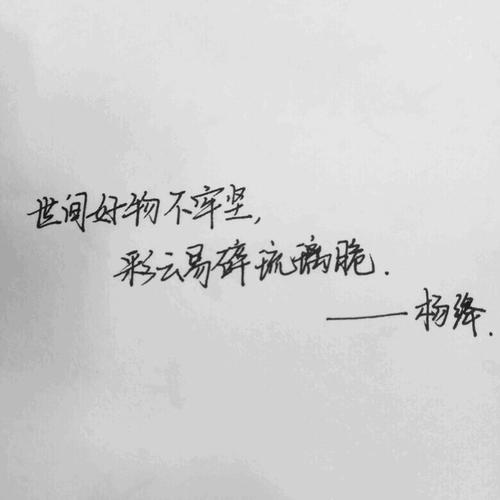 世间好物不牢坚,
彩云易碎琉璃脆.
——杨绛.